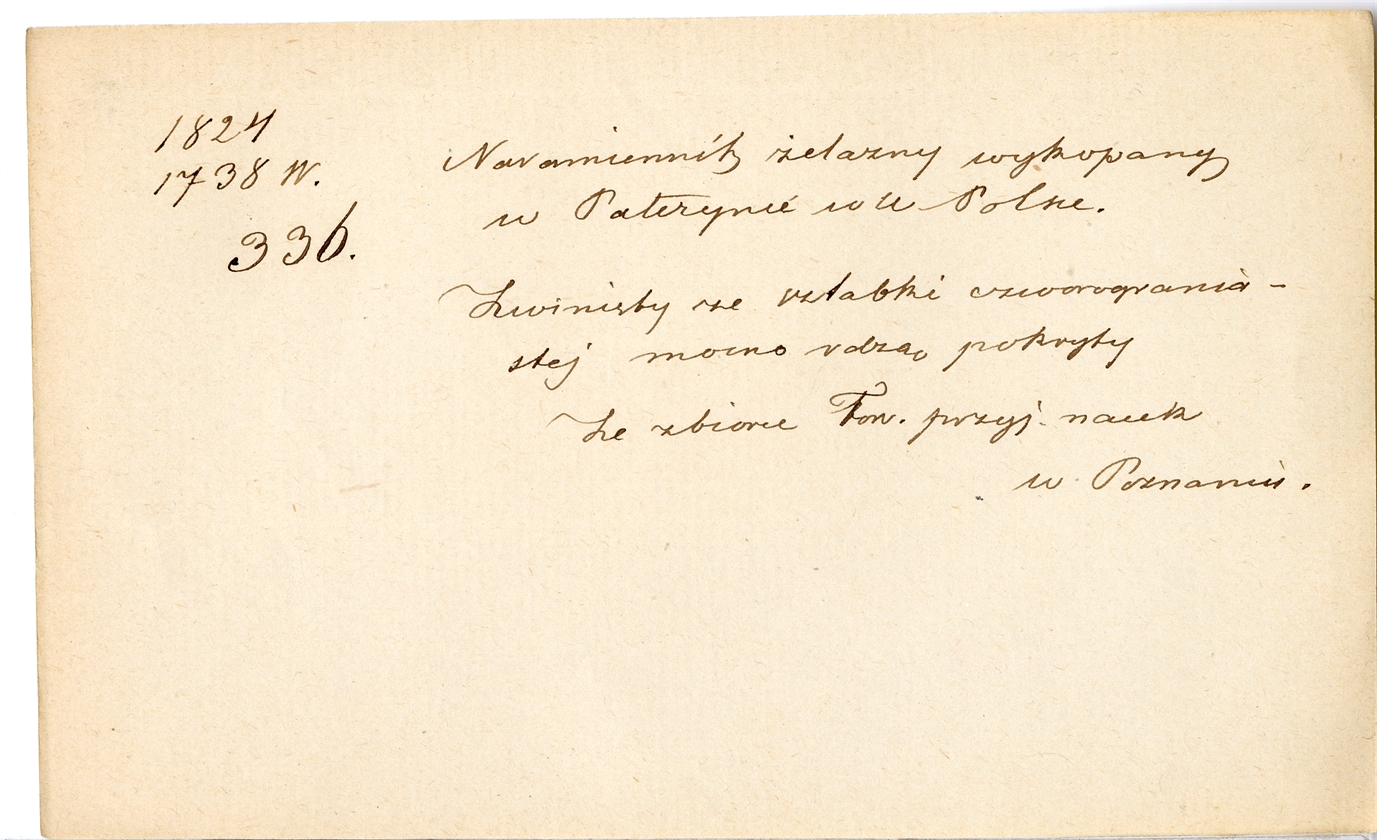 1824
1738 W.
336.
Naramiennik żelazny wykopany
w Paterynie w W Polsce.
Zwinięty ze sztabki czworograniа-
stej mocno rdzą pokryty
Ze zbioru Tow. przyj. nauk
w Poznaniu.